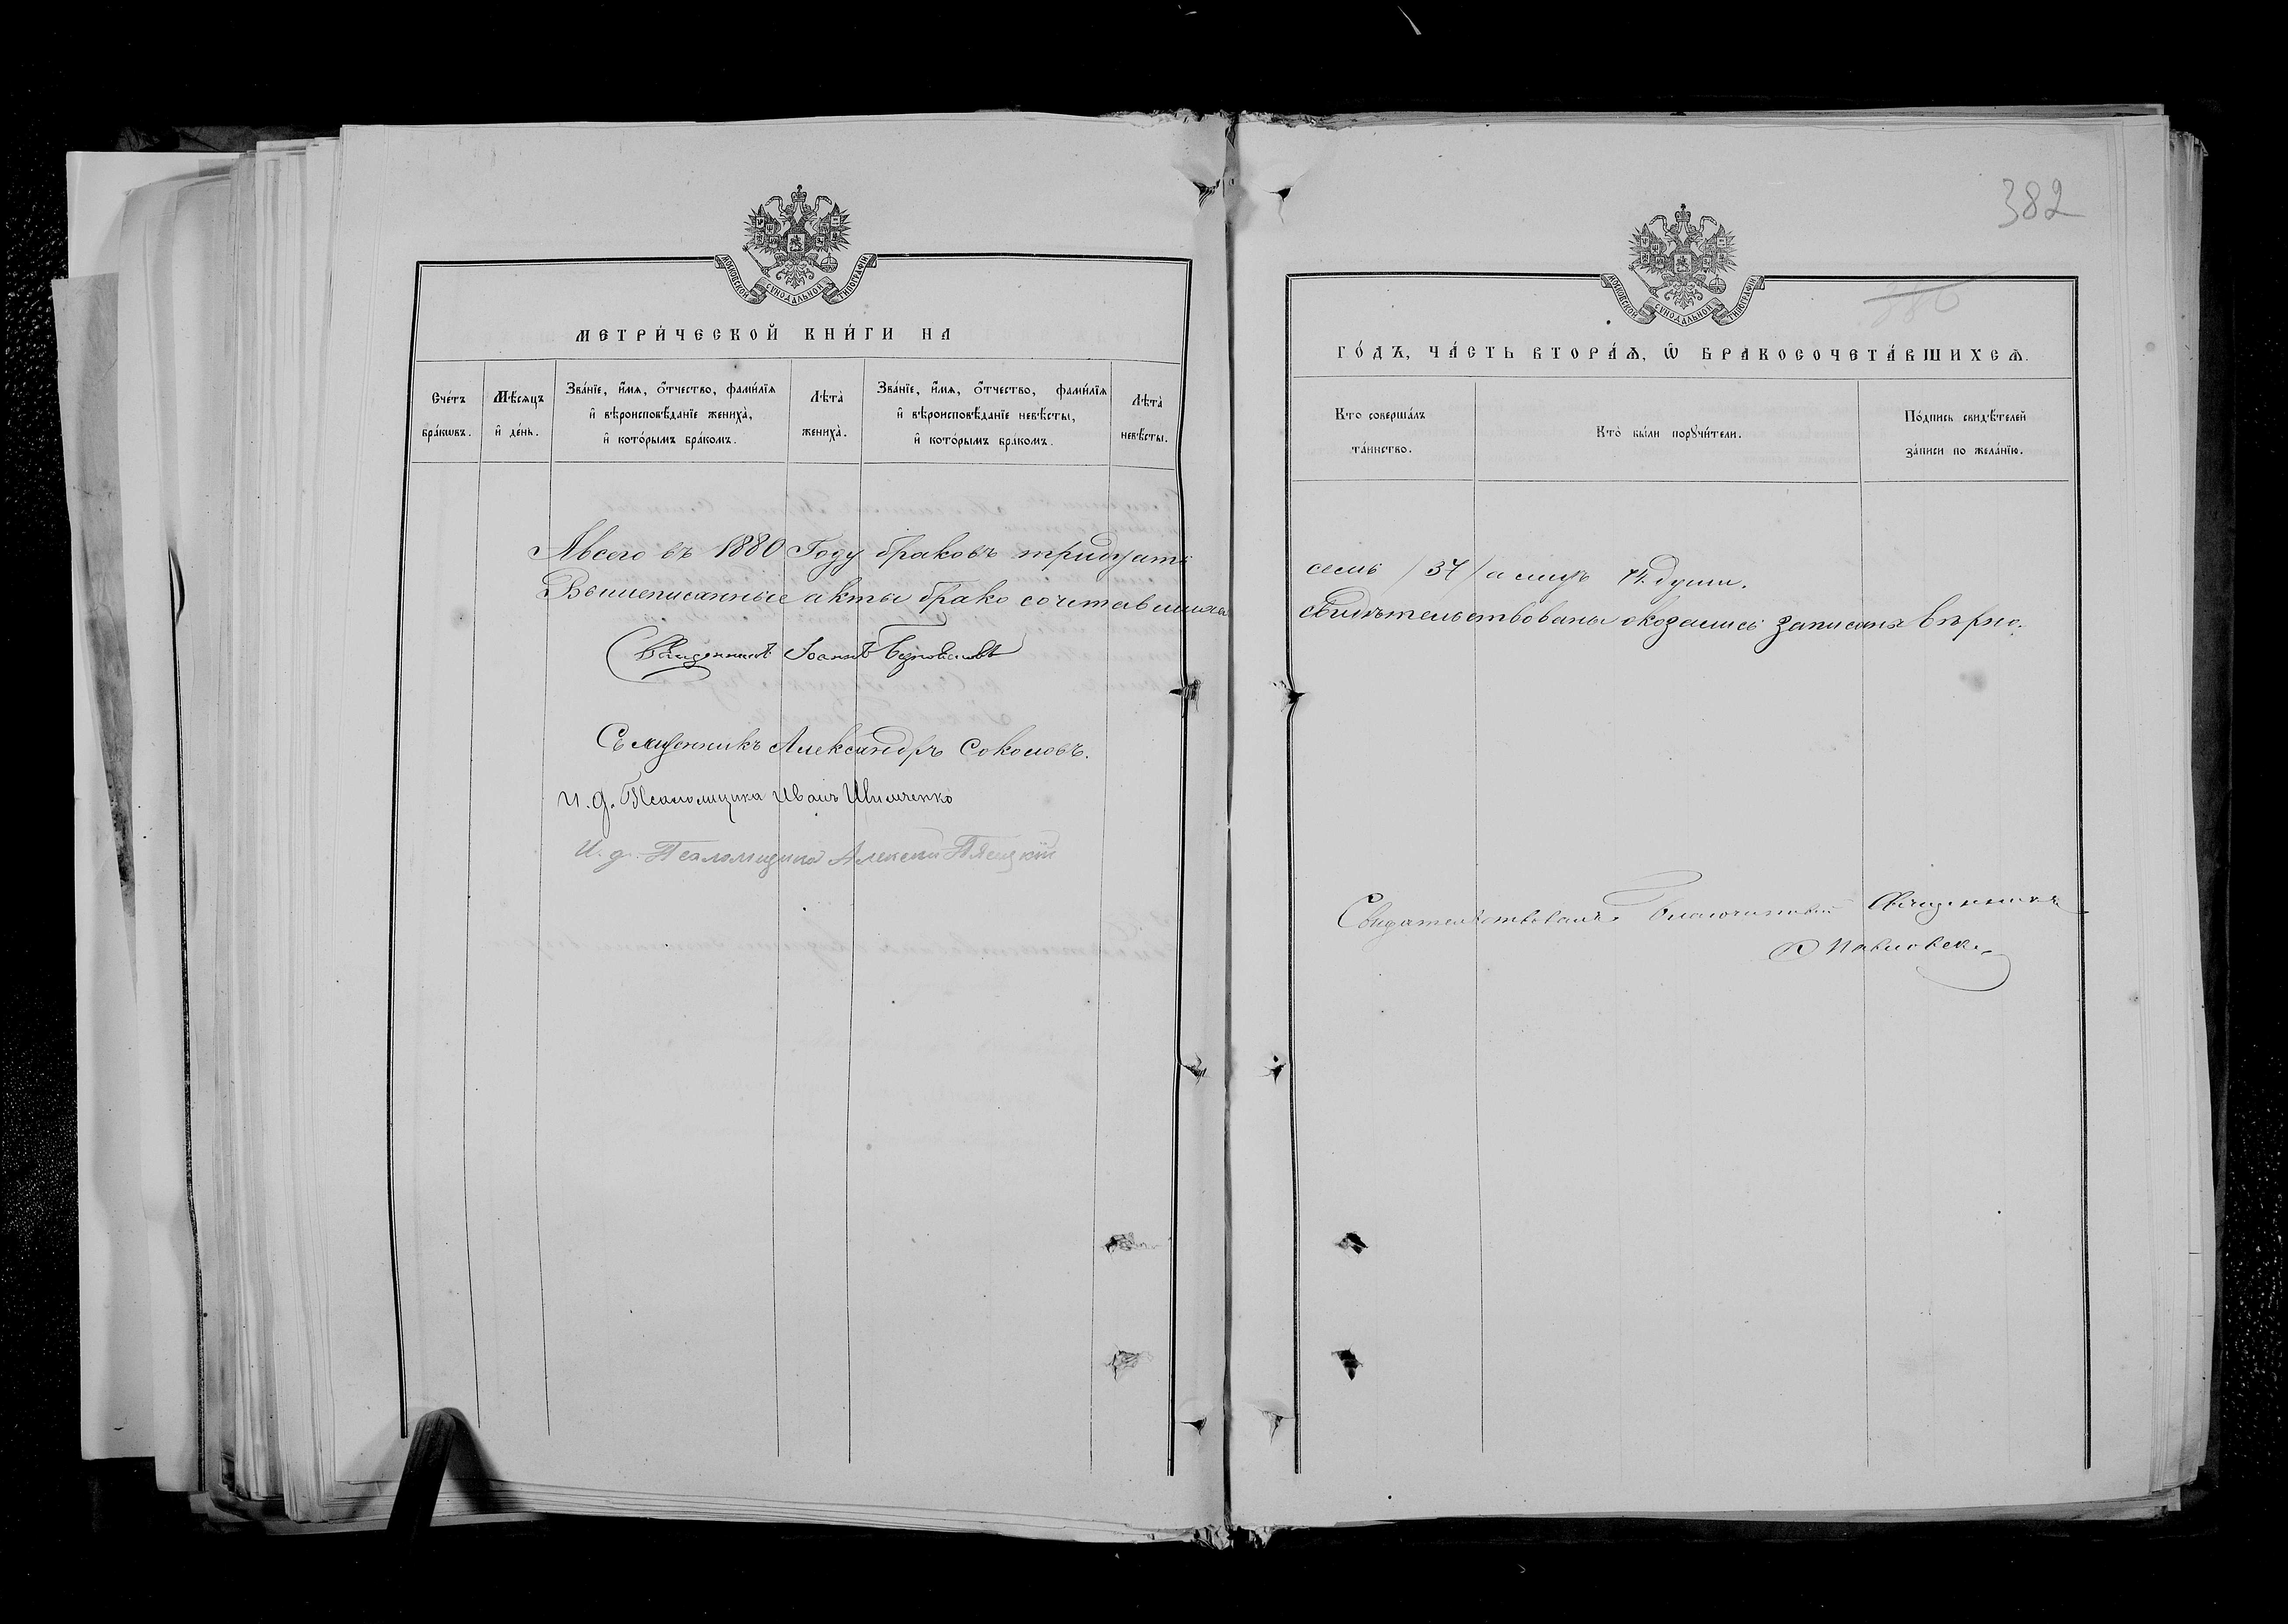 МОСКОВСКОЙ СѴНОДАЛЬНОЙ ТИПОГРАФІИ
МЕТРИ́ЧЕСКОЙ КНИ́ГИ НА
Сче́тъ бра́кωвъ.
Мѣ́сяцъ и҆ де́нь.
Зва́нїе, и҆́мѧ, ѻ҆́тчество, фами́лїѧ
и҆ вѣроисповѣ́данїе жениха̀,
и҆ кото́рымъ бра́комъ.
Лѣта̀ жениха̀.
Зва́нїе, и҆́мѧ, ѻ҆́тчество, фами́лїѧ
и҆ вѣроисповѣ́данїе невѣ́сты,
и҆ кото́рымъ бра́комъ.
Лѣта̀ невѣ́сты.
Авсего въ 1880 Году браковъ тридцать
Вышеписанные акты брако сочетавшихся
Священникъ Іоаннъ
Священникъ Александръ Соколовъ.
И. д. Псаломщика Иванъ
И. д. Псаломщика Алексѣй Пясецкій
382
МОСКОВСКОЙ СѴНОДАЛЬНОЙ ТИПОГРАФІИ
ГО́ДЪ, ЧА́СТЬ ВТОРА́Ѧ, Ѽ БРАКОСОЧЕТА́ВШИХСѦ.
Кто соверша́лъ
та́инство.
Кто̀ бы́ли порꙋчи́тели.
По́дпись свидѣ́телей
за́писи по жела́нїю.
семь /37/ а лицъ 74 души.
свидѣтельствованы оказались записаны вѣрно.
Свидѣтельствовалъ Благочинный Священникъ